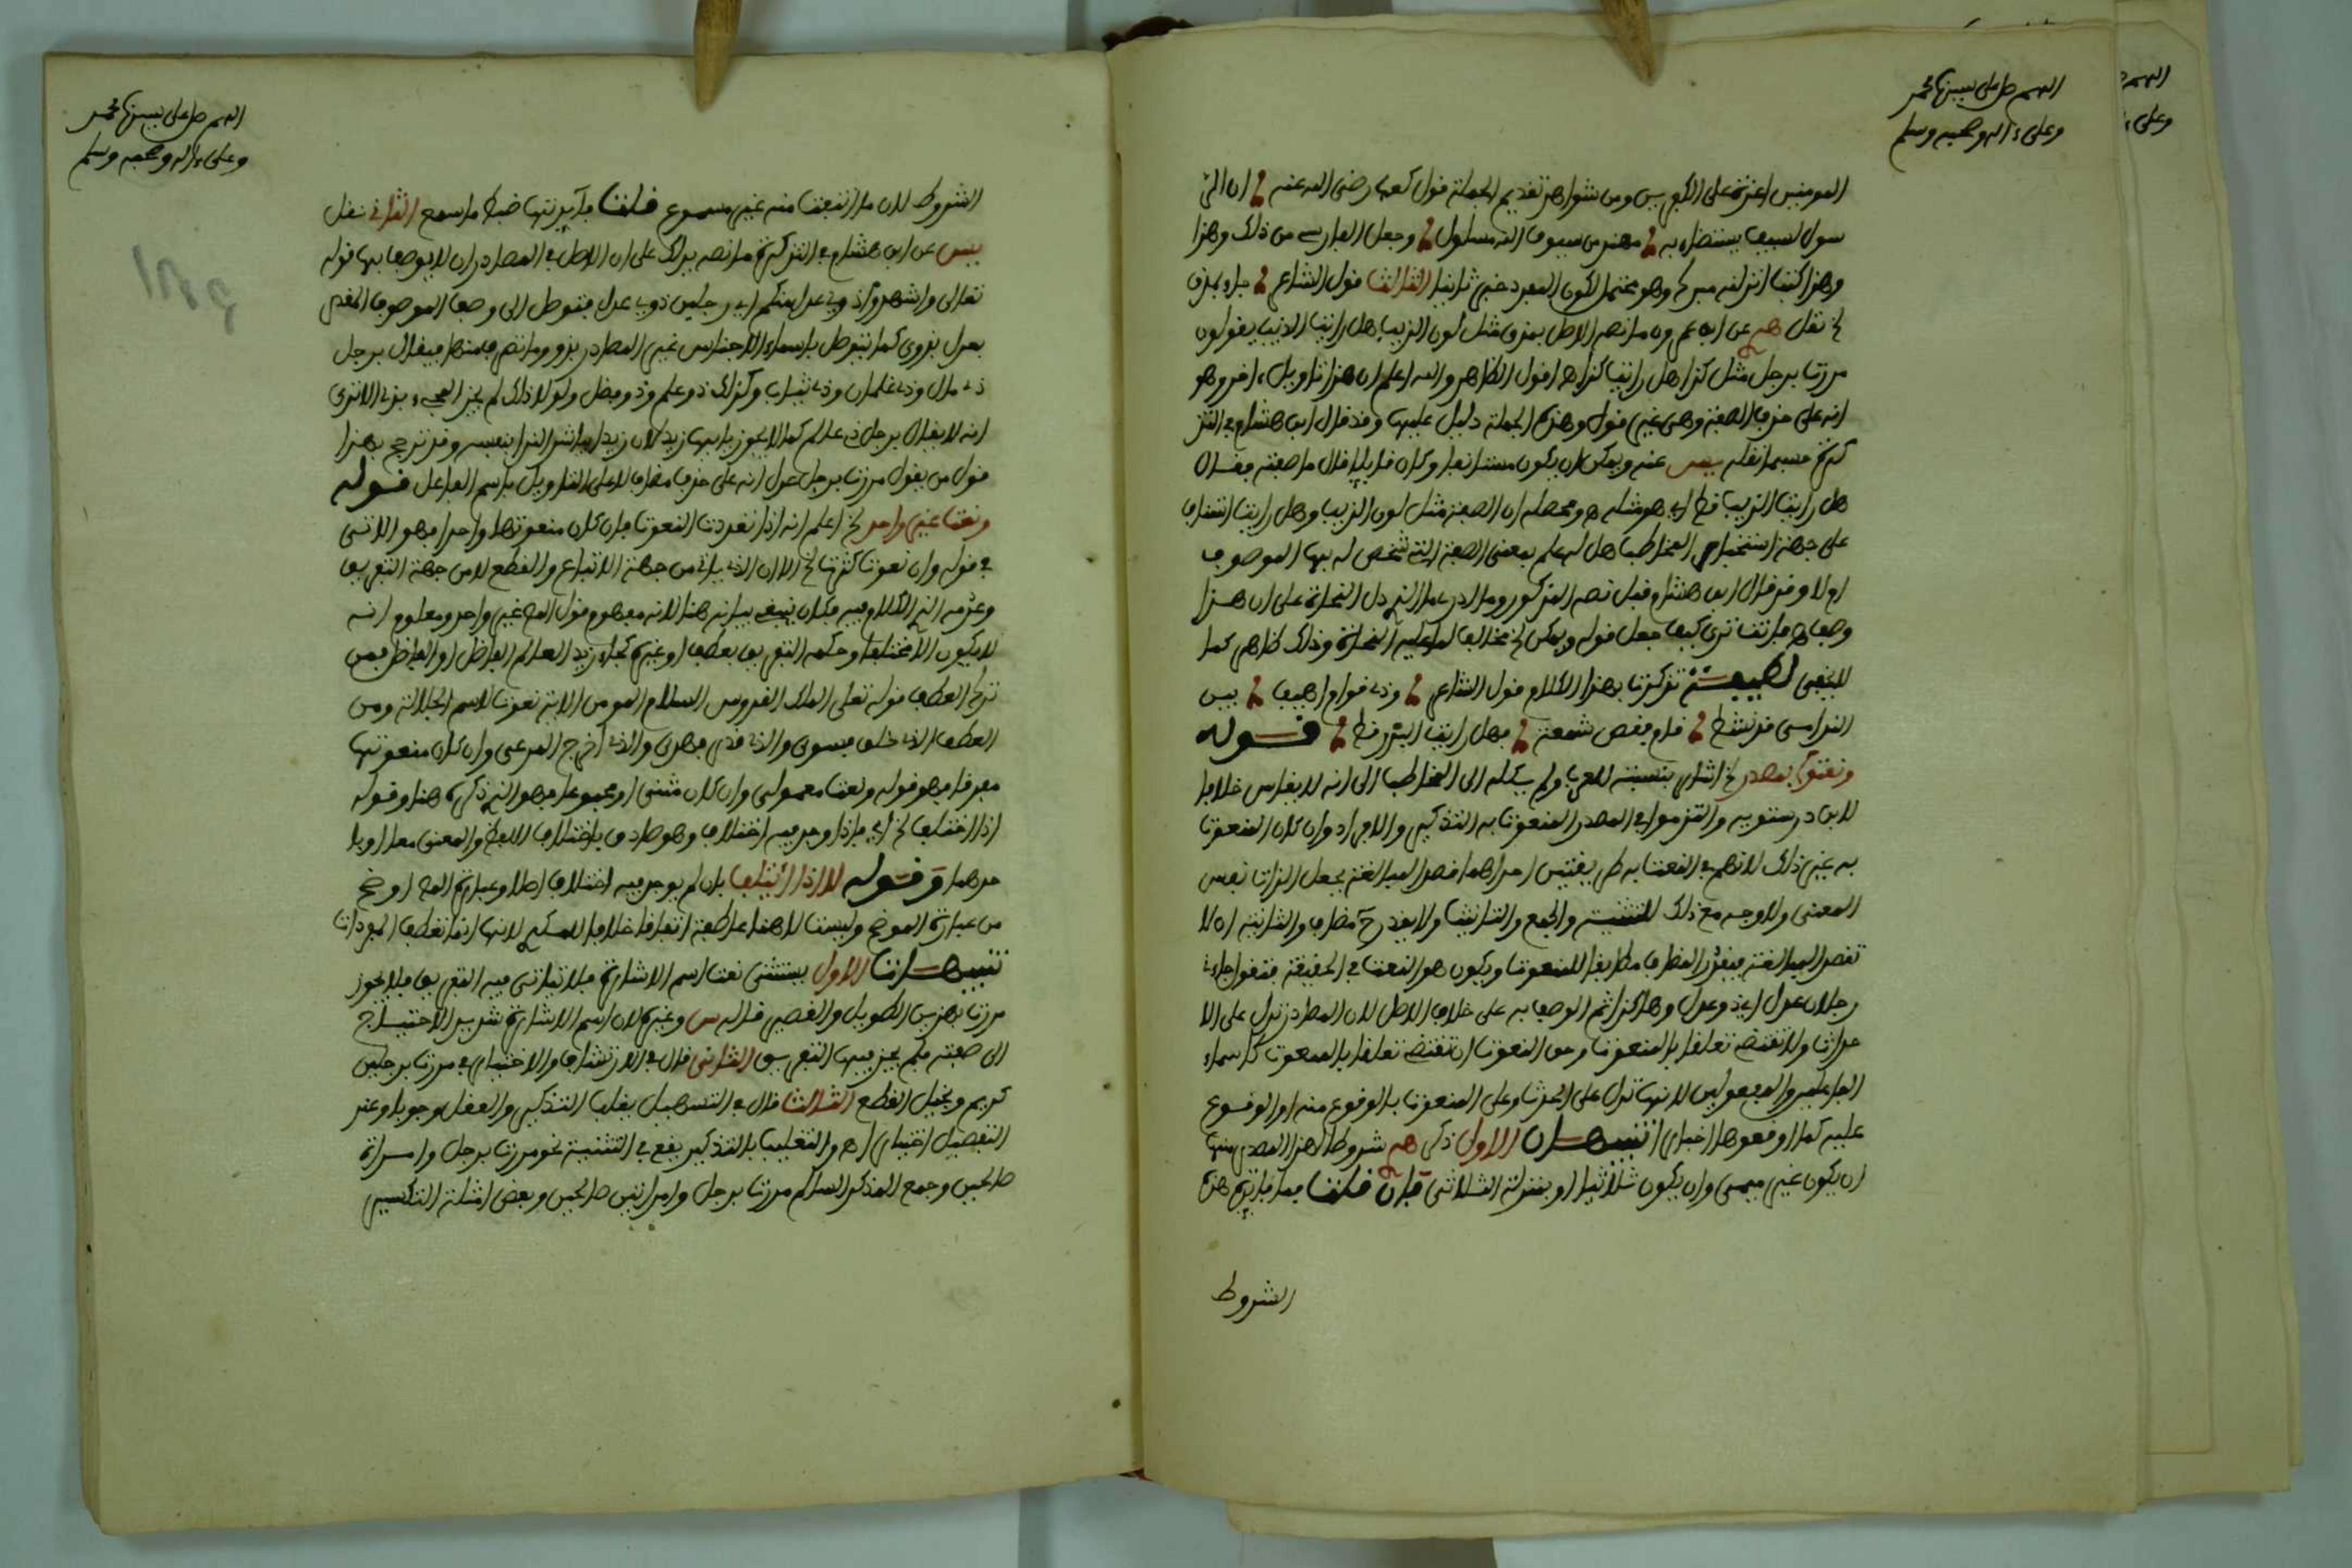 اللهم صل على نبينا محمد
وعلى ءاله وصحبه وسلم
المومنين اعزة على الكافرين ومن شواهد تقديم الجملة قول كعب رضي الله عنه ان الر
سول لسيف يستضاء به مهند من سيوف الله مسلول وجعل الفارسي من ذلك وهذا
وهذا كتب انزلنه مبرك وهو محتمل لكون المفرد خبرا ثانيا الثالث قول الشاعر جاءو بمذق
الخ نقل عن ابن عمرون ما نصه الاصل بمذق مثل لون الذيب هل رايت الذيب يقولون
مررت برجل مثل كذا هل رايت كذا اه اقول الظاهر والله اعلم ان هذا تاويل ءاخر وهو
انه على حذف الصفة وهي غير قول وهذه الجملة دليل عليها وقد قال ابن هشام في التذ
كرة حسبما نقله يس عنه ويمكن ان يكون مستانفا وكان قايلا قال ما صفته فقال
هل رايت الذيب قط اي هو مثله ومحصله ان الصفة مثل لون الذيب وهل رايت استيناف
على جهة استخبار المخاطب هل له علم بمعنى الصفة التي شخص له بها الموصوف
ام لا وقد قال ابن هشام قبل نصه المذكور وما ادري ما الذي دل النحاة على ان هذا
وصف اه فانت ترى كيف جعل قوله ويمكن الخ مخالفا لما عليه النحاة وذلك ظاهر كما
لا يخفى لطيفة تذكرت بهذا الكلام قول الشاعر وذي قوام اهيف بين
الندامى قد نشط قام يقص شمعة فهل رايت البدر قط قوله
ونعتوا بمصدر الخ اشار بنسبته للعرب ولم يكله الى المخاطب الى انه لا يقاس خلافا
لابن درستويه والتزموا في المصدر المنعوت به التذكير والافراد وان كان المنعوت
به غير ذلك لانهم في النعت به طريقتين احداهما قصد المبالغة بجعل الذات نفس
المعنى ولا وجه مع ذلك للتثنية والجمع والتانيث ولا يقدر مضاف والثانية ان لا
تقصد المبالغة فيقدر المضاف مطابقا للمنعوت ويكون هو النعت في الحقيقة فتقول جاءني
رجلان عدل اي ذوا عدل وهكذا ثم الوصف به على خلاف الاصل لان المصادر تدل على الا
حداث ولا تقتضي تعلقا بالمنعوت وحق النعوت ان تقتضي تعلقا بالمنعوت كاسماء
الفاعلين والمفعولين لانها تدل على الحدث وعلى المنعوت بالوقوع منه او الوقوع
عليه كما اوقعوها اخبارا تنبيهان الاول ذكر شروطا لهذا المصدر منها
ان يكون غير ميمي وان يكون ثلاثيا او بمنزلة الثلاثي فان قلت فما فايدة هذه
الشروط
اللهم صل على نبينا محمد
وعلى ءاله وصحبه وسلم
الشروط لان ما انتفت منه غير مسموع قلت فايدتها ضبط ما سمع الثاني نقل
يس عن ابن هشام في التذكرة ما نصه يدلك على ان الاصل في المصادر ان لا يوصف بها قوله
تعالى واشهدوا ذوي عدل منكم اي رجلين ذوي عدل فتوصل الى وصف الموصوف المقدر
بعدل بذوي كما نتوصل باسماء الاجناس غير المصادر بذو وما تصرف منها فيقال برجل
ذي مال وذي غلمان وذي ثياب وكذلك ذو علم وذو فضل ولولا ذلك لم يجز المجيء بذي الا ترى
انه لا يقال برجل ذي عالم كما لا يجوز يا ايها زيد لان زيدا يباشر الندا بنفسه وقد ترجح بهذا
قول من يقول مررت برجل عدل انه على حذف مضاف لا على التاويل باسم الفاعل قوله
ونعت غير واحد الخ اعلم انه اذا تعددت النعوت فان كان منعوتها واحدا فهو الاتي
في قوله وان نعوت كثرت الخ الا ان الذي ياتي من جهة الاتباع والقطع لا من جهة التفريق
وعدمه الذي الكلام فيه فكان ينبغي بيانه هنا لانه مفهوم قول المص غير واحد ومعلوم انه
لا يكون الا مختلفا وحكمه التفريق بعطف او غيره كجاء زيد العالم الفاضل او والفاضل فمن
ترك العطف قوله تعلى الملك القدوس السلام المومن الاية نعوت لاسم الجلالة ومن
العطف الذي خلق فسوى والذي قدر فهدى والذي اخرج المرعى وان كان منعوتها
مفرقا فهو قوله ونعت معمولي وان كان مثنى او مجموعا فهو الذي ذكره هنا وقوله
اذا اختلف الخ اي فاذا وجد فيه اختلاف وهو صادق باختلاف اللفظ والمعنى معا او با
حدهما وقوله لا اذا ائتلف بان لم يوجد فيه اختلاف اصلا وعبارة المص اوضح
من عبارة الموضح وليست لا هنا عاطفة اتفاقا خلافا للمكي لانها انما تعطف المفردات
تنبيهات الاول يستثنى نعت اسم الاشارة فلا يتاتى فيه التفريق فلا يجوز
مررت بهذين الطويل والقصير قاله س وغيره لان اسم الاشارة شديد الاحتياج
الى صفته فلم يجز فيها التفريق الثاني قال في الارتشاف والاختيار في مررت برجلين
كريم وبخيل القطع الثالث قال في التسهيل يغلب التذكير والعقل وجوبا وعند
التفصيل اختيارا اه والتغليب بالتذكير يقع في التثنية نحو مررت برجل وامراة
صالحين وجمع المذكر السالم مررت برجل وامراتين صالحين وبعض امثلة التكسير